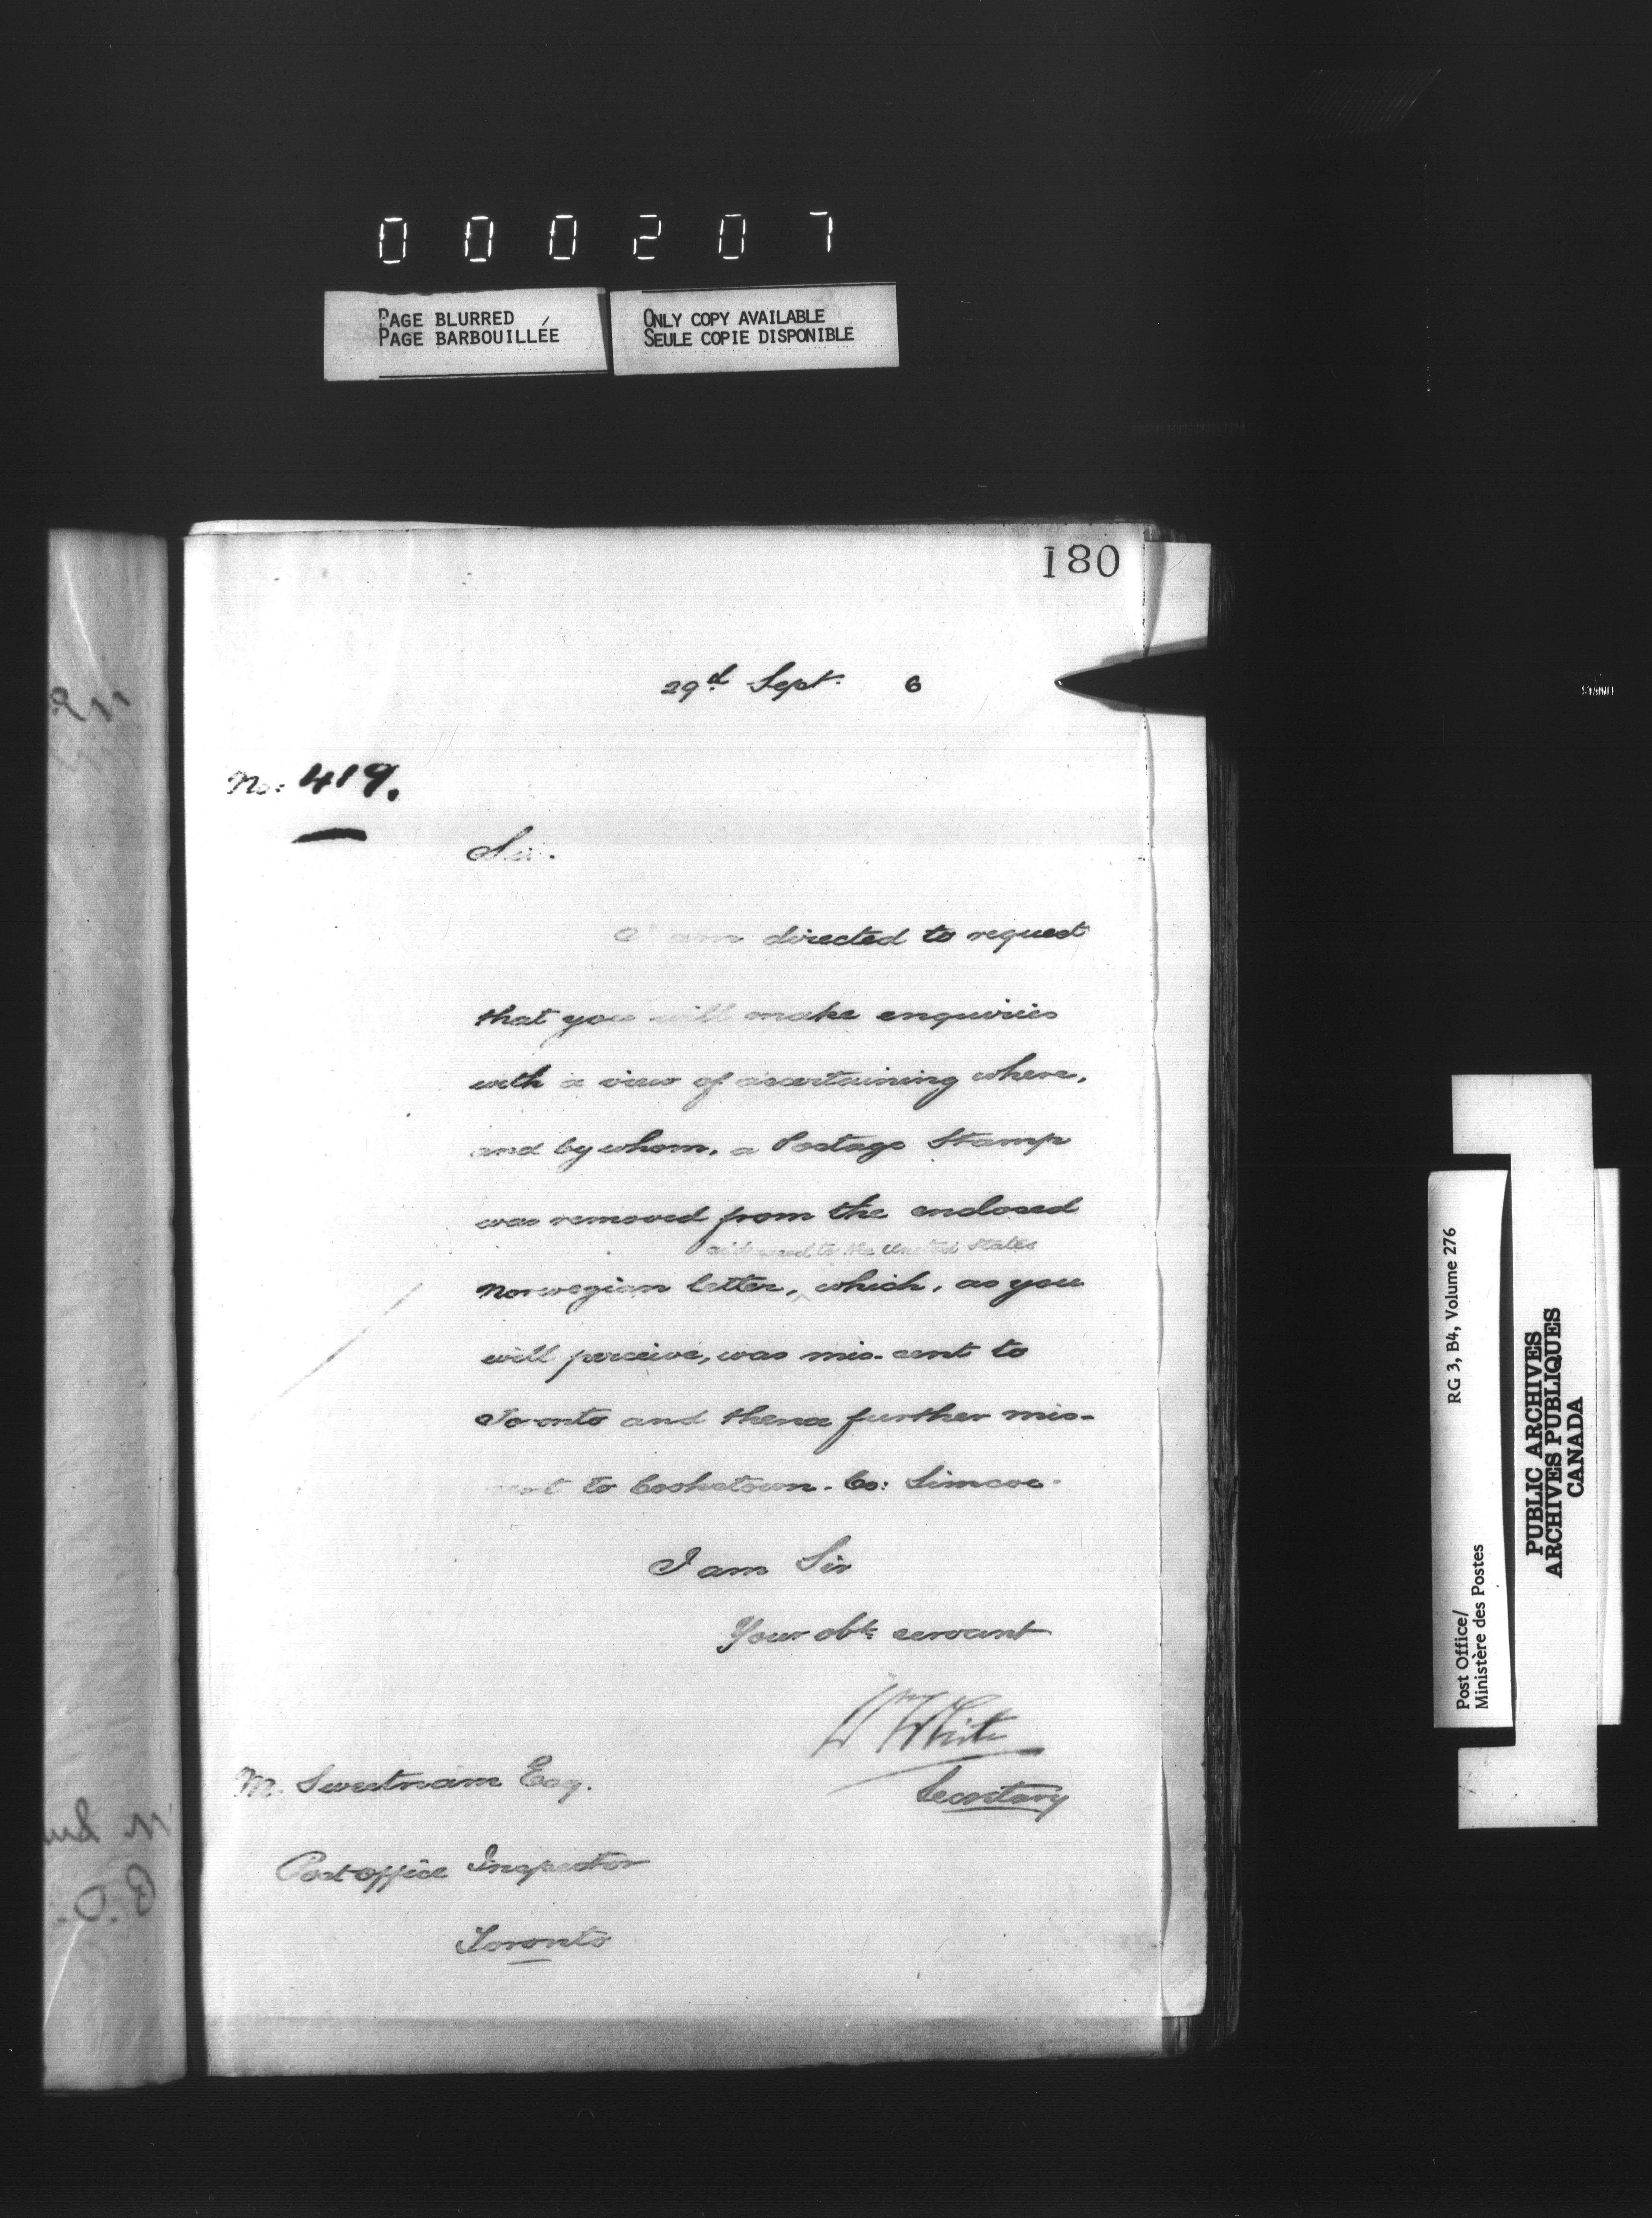 000207
PAGE BLURRED
PAGE BARBOUILLÉE
ONLY COPY AVAILABLE
SEULE COPIE DISPONIBLE
180
29d Sept. 6
No: 419.
Sir.
I am directed to request
that you will make enquiries
with a view of ascertaining where,
and by whom, a Postage Stamp
was removed from the enclosed
addressed to the United States
Norwegian letter, ^ which, as you
will perceive, was mis-sent to
Toronto and thence further mis-
sent to Cookstown. Co: Simcoe.
I am Sir
Your obt. servant
Wm White
Secretary
M. Sweetnam Esq.
Post Office Inspector
Toronto
RG 3, B4, Volume 276
Post Office/
Ministère des Postes
PUBLIC ARCHIVES
ARCHIVES PUBLIQUES
CANADA